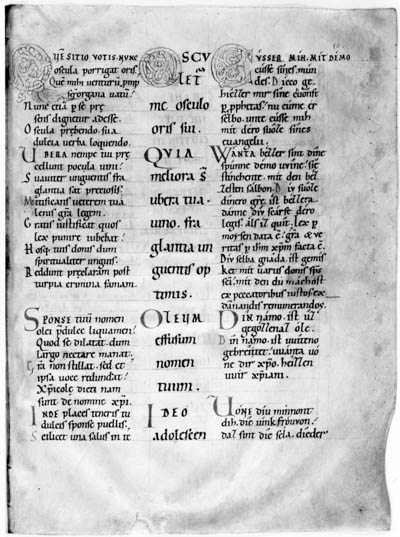 QVĘ SITIO VOTIS. NVNC
oscula porrigat oris.
Quę mih venturū. pmp
organa vatū.
Nunc etiā p se prę
sens dignetur adesse.
Oscula prębendo. sua
dulcia verba loquendo.
VBERA nempe tui prę
cellunt pocula vini.
Suaviter unguentis fra
glantia sat preciosis.
Mitificans veterem tua
legem.
Gratia iustificat quos
lex punire iubebat.
Hos tuus donis dum
spiritualiter unguis.
Reddunt pręclaram post
turpia crimina famam.
SPONSE tuū nomen
olei pdulce liquamen.
Quod se dilatat. dum
largo nectare manat.
non stillat. sed et
ipsa voce redundat.
Xpicolę dicti nam
sunt de nomine xpi.
INDE places teneris tu
dulcis sponse puellis.
Scilicet una salus in te
OSCV
LET
me osculo
oris sui.
QVIA
meliora sī
ubera tua.
uino. fra
glantia un
guentis op
timis.
OLEVM
effusum
nomen
tuum.
IDEO
adolescen
CVSSER MIH. MIT DĒMO
cusse sines. mun
des. Dicco ge.
hiezzer mir sine cuonst
p pphetas. nu cume er
selbo. unte cusse mih
mit dero suoze sines
euangelii.
WANTA bezzer sint dine
spunne demo uvine. sie
stinchente. mit den bez
zesten salbon. Div suoze
dinero grę. ist bezzera
danne div scarfe dero
legis. als iz quit. lex p
moysen data ē. gra & ve
ritas p ihm xpm facta ē.
Div selba gnada. ist gemis
ket mit variis donis sps
sci. mit den du machost
ex peccatoribus iustos. ex
dannandis remunerandos.
Din namo. ist uz
gegozzenaz ole.
Din namo. ist vuuteno
gebreitet. vuanta vo
ne dir xpo. heizzen
vuir xpiani.
VONE diu minnont
dih die iunkfrovvon.
daz sint die sela. dieder